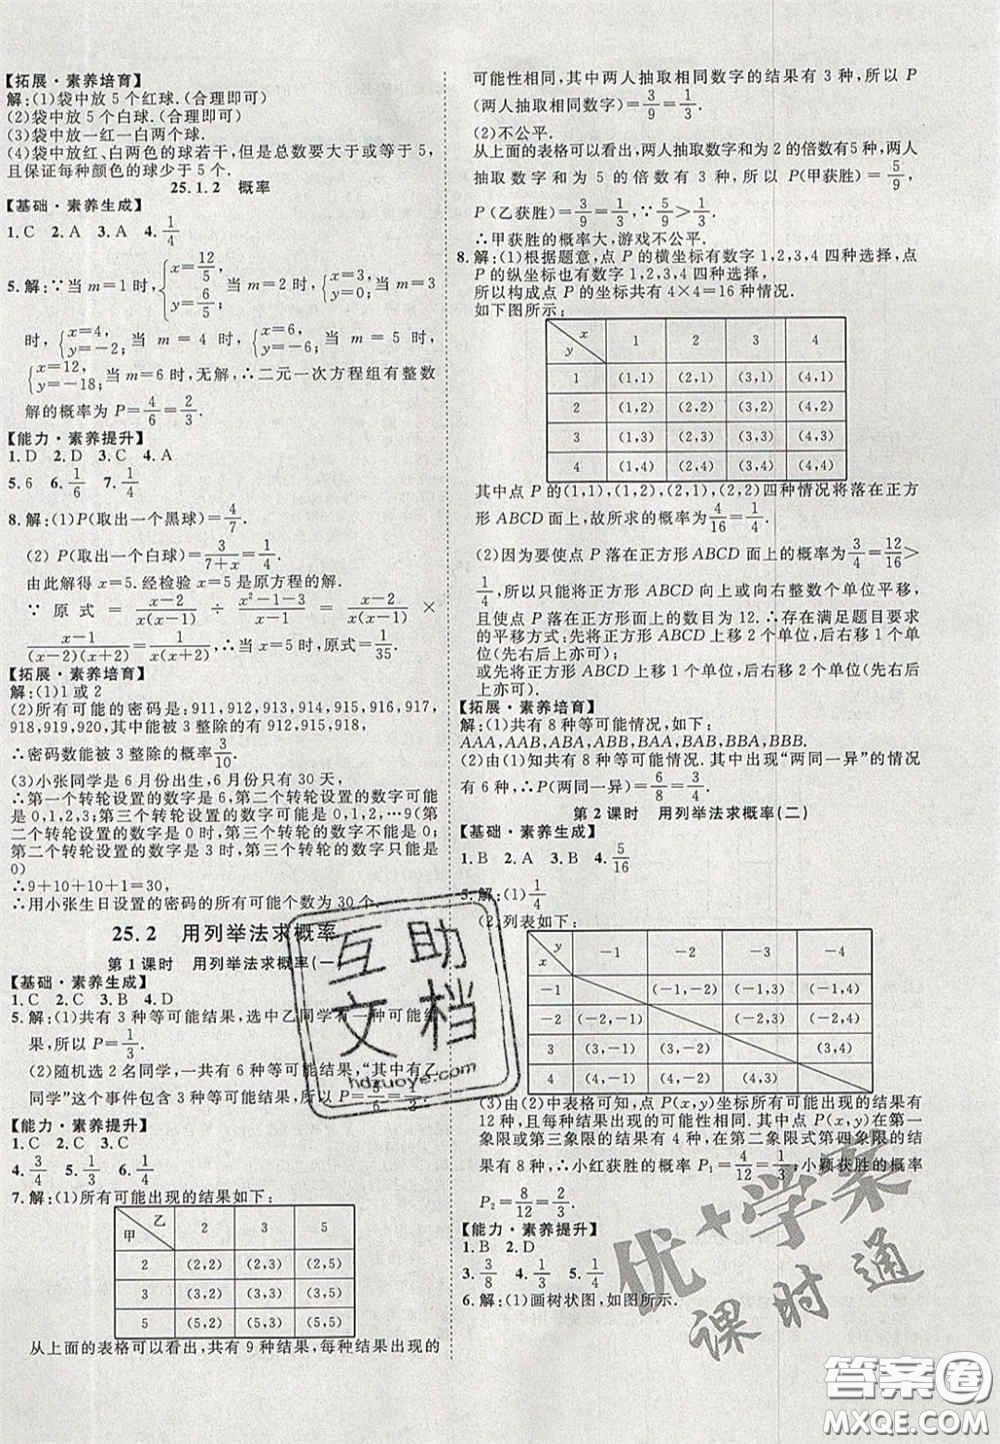 【拓展·素养培育】
解:(1)袋中放 5 个红球.(合理即可)
(2)袋中放 5 个白球.(合理即可)
(3)袋中放一红一白两个球.
(4)袋中放红、白两色的球若干,但是总数要大于或等于 5,
且保证每种颜色的球少于 5 个.
25.1.2 概率
【基础·素养生成】
1.C 2.A 3.A 4.1/4
5.解:∵当 m=1 时,{x=12/5, y=6/5;当 m=2 时,{x=3, y=0;当 m=3
时,{x=4, y=-2;当 m=4 时,{x=6, y=-6;当 m=5 时,
{x=12, y=-18;当 m=6 时,无解,∴二元一次方程组有整数
解的概率为 P=4/6=2/3.
【能力·素养提升】
1.D 2.D 3.C 4.A
5.6 6.1/6 7.1/4
8.解:(1)P(取出一个黑球)=4/7.
(2) P(取出一个白球)=3/(7+x)=1/4.
由此解得 x=5.经检验 x=5 是原方程的解.
∵ 原式 = (x-2)/(x(x-1)) ÷ (x²-1-3)/(x-1) = (x-2)/(x(x-1)) ×
(x-1)/((x-2)(x+2)) = 1/(x(x+2)),∴当 x=5 时,原式=1/35.
【拓展·素养培育】
解:(1)1 或 2
(2)所有可能的密码是:911,912,913,914,915,916,917,
918,919,920,其中能被 3 整除的有 912,915,918,
∴密码数能被 3 整除的概率3/10.
(3)小张同学是 6 月份出生,6 月份只有 30 天,
∴第一个转轮设置的数字是 6,第二个转轮设置的数字可能
是 0,1,2,3;第三个转轮设置的数字可能是 0,1,2,…9(第
二个转轮设置的数字是 0,第三个转轮的数字不能是 0;
第二个转轮设置的数字是 3,第三个转轮的数字只能是
0)
∴9+10+10+1=30,
∴用小张生日设置的密码的所有可能个数为 30 个.
25.2 用列举法求概率
第 1 课时 用列举法求概率(一
【基础·素养生成】
1.C 2.C 3.B 4.D
5.解:(1)共有 3 种等可能结果,选中乙同学有一种可能结
果,所以 P=1/3.
(2)随机选 2 名同学,一共有 6 种等可能结果,“其中有乙
同学”这个事件包含 3 种等可能结果,所以 P=3/6=1/2.
【能力·素养提升】
1.C 2.D 3.C
4.3/4 5.1/3 6.1/4
7.解:(1)所有可能出现的结果如下:
乙 甲 2 3 5
2 (2,2) (2,3) (2,5)
3 (3,2) (3,3) (3,5)
5 (5,2) (5,3) (5,5)
从上面的表格可以看出,共有 9 种结果,每种结果出现的
可能性相同,其中两人抽取相同数字的结果有 3 种,所以 P
(两人抽取相同数字)=3/9=1/3.
(2)不公平.
从上面的表格可以看出,两人抽取数字和为 2 的倍数有5 种,
两人抽取数字和为 5 的倍数有 3 种,所以 P(甲获胜)=5/9,
P(乙获胜)=3/9=1/3,∵5/9>1/3.
∴甲获胜的概率大,游戏不公平.
8.解:(1)根据题意,点 P 的横坐标有数字 1,2,3,4 四种选择,点
P 的纵坐标也有数字 1,2,3,4 四种选择,
所以构成点 P 的坐标共有 4×4=16 种情况.
如下图所示:
x y 1 2 3 4
1 (1,1) (2,1) (3,1) (4,1)
2 (1,2) (2,2) (3,2) (4,2)
3 (1,3) (2,3) (3,3) (4,3)
4 (1,4) (2,4) (3,4) (4,4)
其中点 P 的(1,1),(1,2),(2,1),(2,2)四种情况将落在正方
形 ABCD 面上,故所求的概率为4/16=1/4.
(2)因为要使点 P 落在正方形 ABCD 面上的概率为3/4=12/16>
1/4,所以只能将正方形 ABCD 向上或向右整数个单位平移,
且使点 P 落在正方形面上的数目为 12.∴存在满足题目要求
的平移方式:先将正方形 ABCD 上移 2 个单位,后右移 1 个单
位(先右后上亦可);
或先将正方形 ABCD 上移 1 个单位,后右移 2 个单位(先右后
上亦可).
【拓展·素养培育】
解:(1)共有 8 种等可能情况,如下:
AAA,AAB,ABA,ABB,BAA,BAB,BBA,BBB.
(2)由(1)知共有 8 种等可能情况.其中出现“两同一异”的情况
有 6 种,∴P(两同一异)=6/8=3/4.
第 2 课时 用列举法求概率(二)
【基础·素养生成】
1.B 2.A 3.B 4.5/16
5.解:(1)1/4
(2)列表如下:
y x -1 -2 -3 -4
-1 (-1,-2) (-1,3) (-1,4)
-2 (-2,-1) (-2,3) (-2,4)
3 (3,-1) (3,-2) (3,4)
4 (4,-1) (4,-2) (4,3)
(3)由(2)中表格可知,点 P(x,y)坐标所有可能出现的结果有
12 种,且每种结果出现的可能性相同.其中点 P(x,y)在第一
象限或第三象限的结果有 4 种,在第二象限或第四象限的结
果有 8 种,∴小红获胜的概率 P₁=4/12=1/3,小颖获胜的概率
P₂=8/12=2/3.
【能力·素养提升】
1.B 2.D
3.3/8 4.1/3 5.1/3
6.解:(1)画树状图,如图所示.
互助
文档
hdzuoye.com
优+学案
课时通
答案圈
MXQE.COM